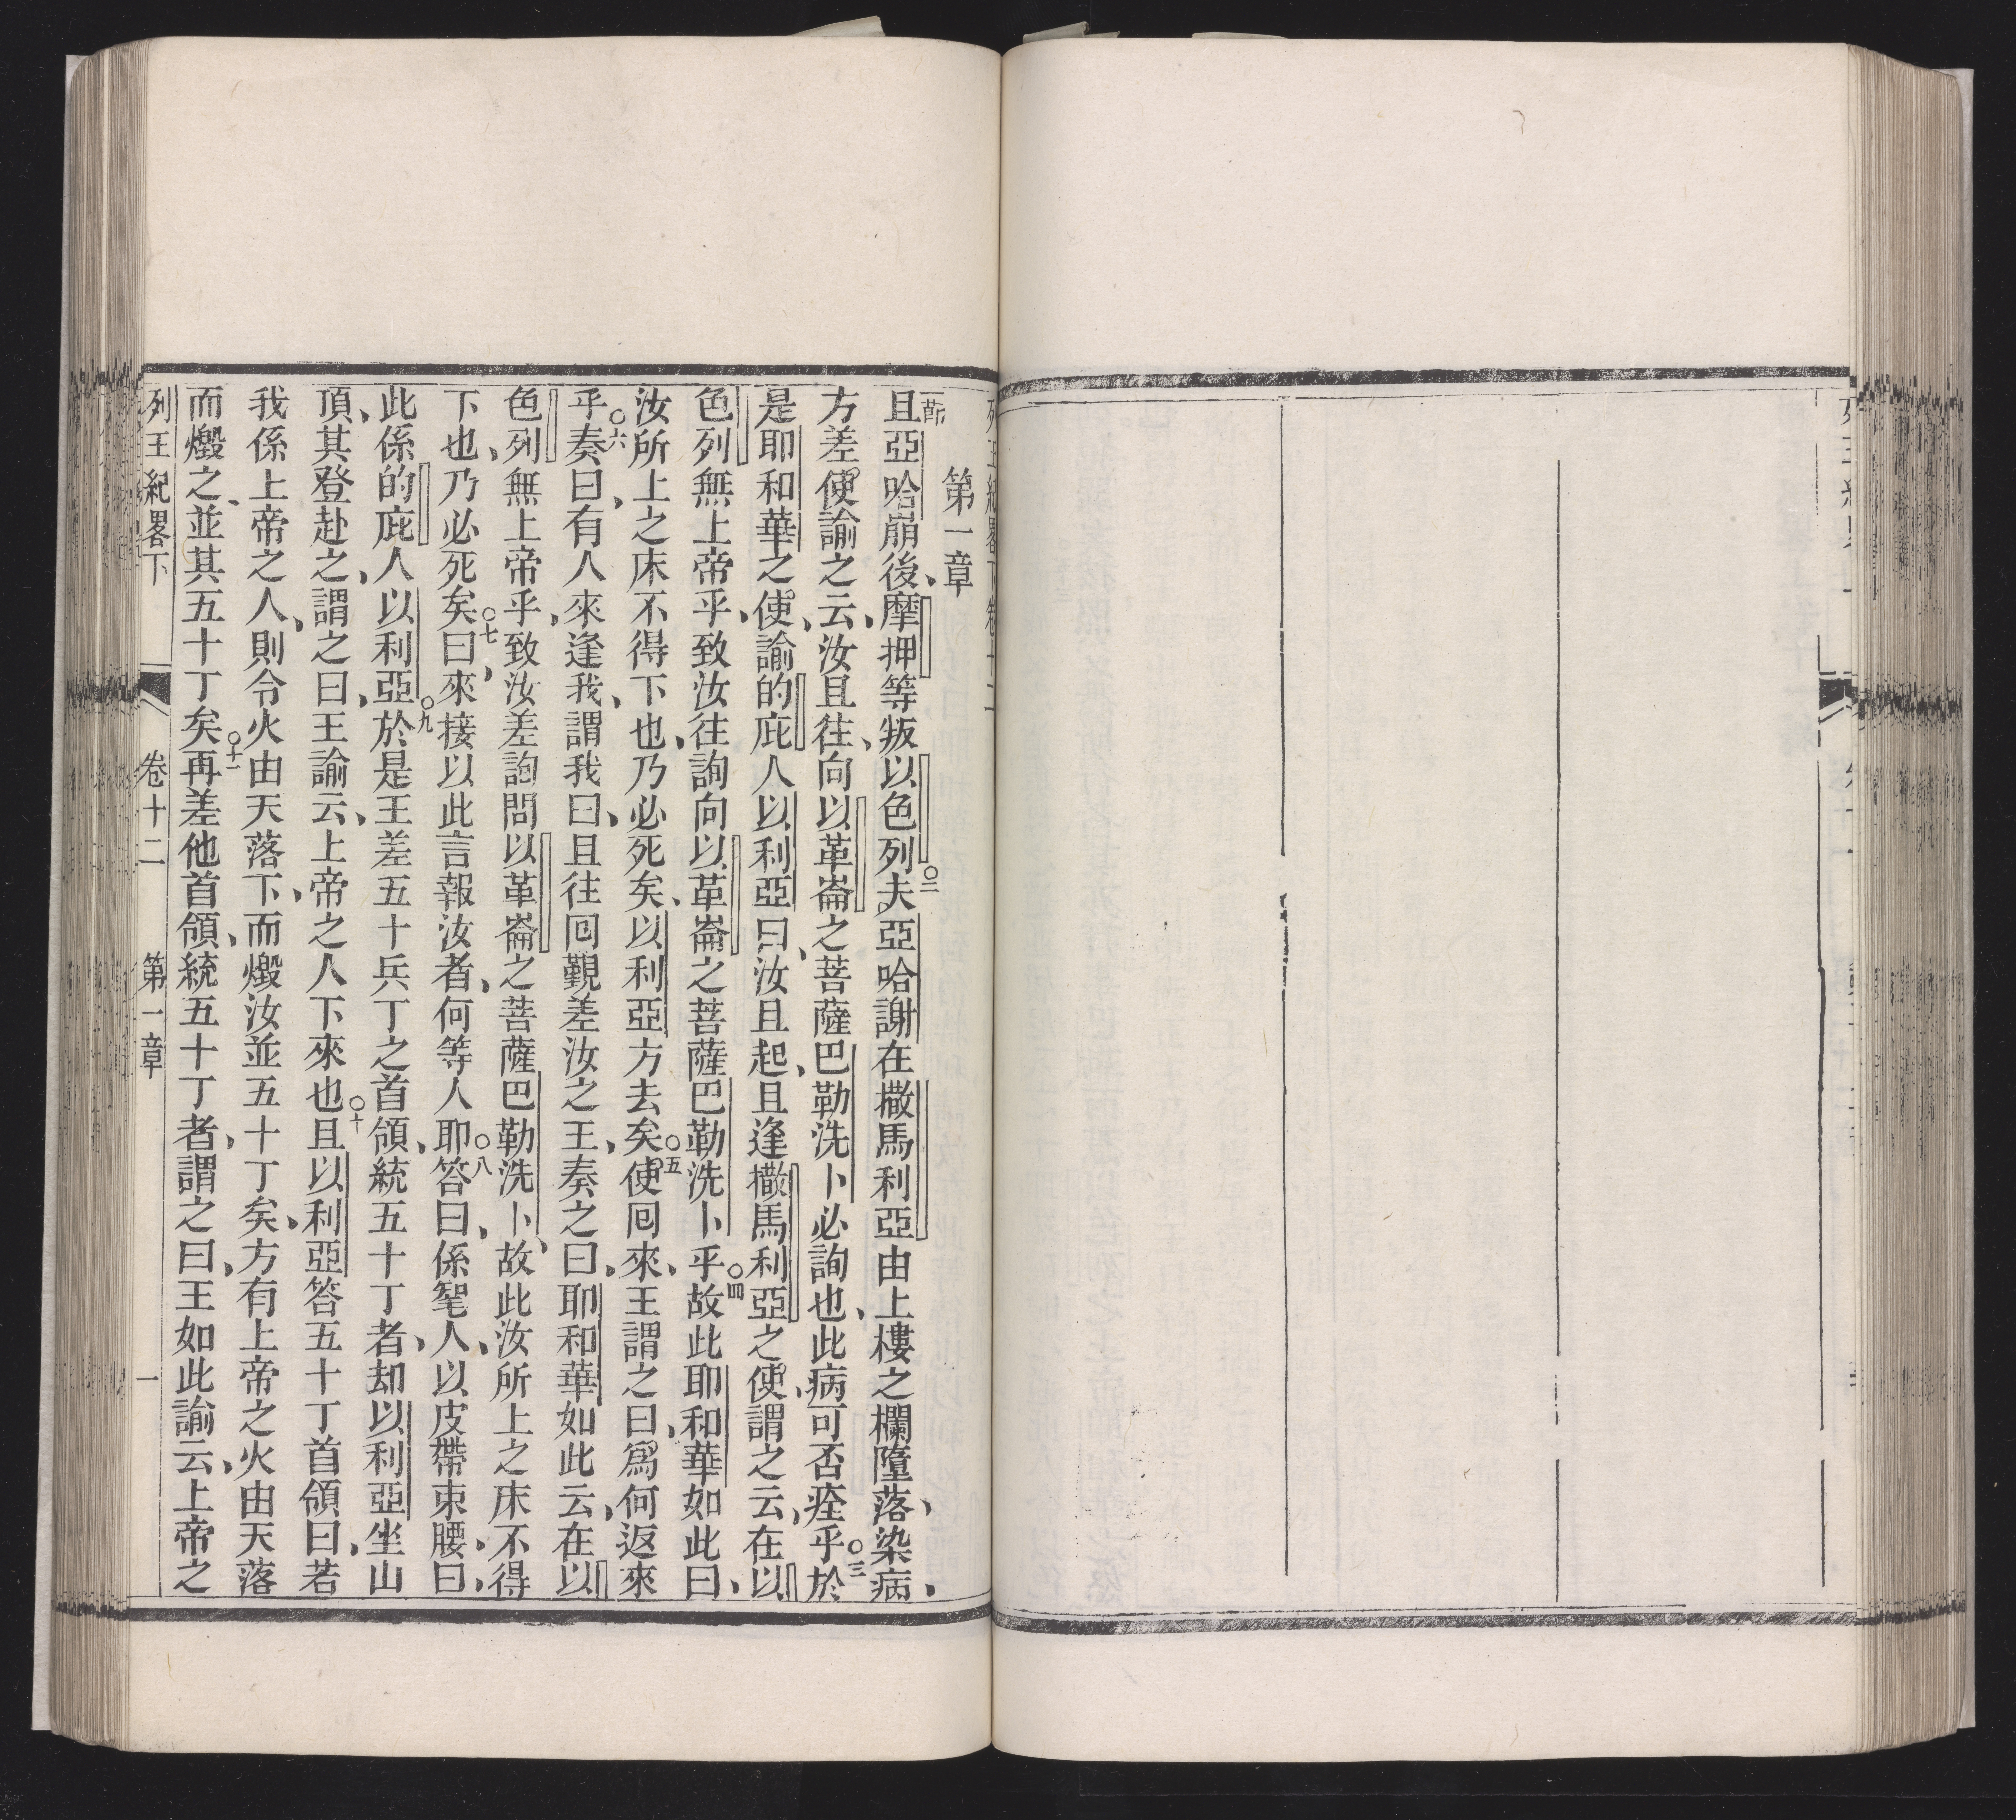 列王紀畧下卷十二
第一章
一節
且亞哈崩後、摩押等叛以色列○二夫亞哈謝在撒馬利亞由上樓之欄墮落、染病、
方差使諭之云、汝且往、向以革崙之菩薩巴勒洗卜必詢也、此病可否痊乎○三於
是耶和華之使、諭的庇人以利亞曰、汝且起、且逢撒馬利亞之使、謂之云、在以
色列無上帝乎、致汝往詢向以革崙之菩薩巴勒洗卜乎○四故此耶和華如此曰、
汝所上之床不得下也、乃必死矣、以利亞方去矣○五使囘來、王謂之曰、爲何返來
乎○六奏曰、有人來逢我、謂我曰、且往囘覲差汝之王、奏之曰、耶和華如此云、在以
色列無上帝乎、致汝差詢問以革崙之菩薩巴勒洗卜、故此汝所上之床不得
下也、乃必死矣○七曰、來接以此言報汝者、何等人耶○八答曰、係髦人、以皮帶束腰、曰、
此係的庇人以利亞○九於是王差五十兵丁之首領、統五十丁者、却以利亞坐山
頂、其登赴之、謂之曰、王諭云、上帝之人下來也○十且以利亞答五十丁首領曰、若
我係上帝之人、則令火由天落下、而燬汝並五十丁矣、方有上帝之火由天落
而燬之、並其五十丁矣○十一再差他首領、統五十丁者、謂之曰、王如此諭云、上帝之
列王紀畧下 卷十二 第一章 一